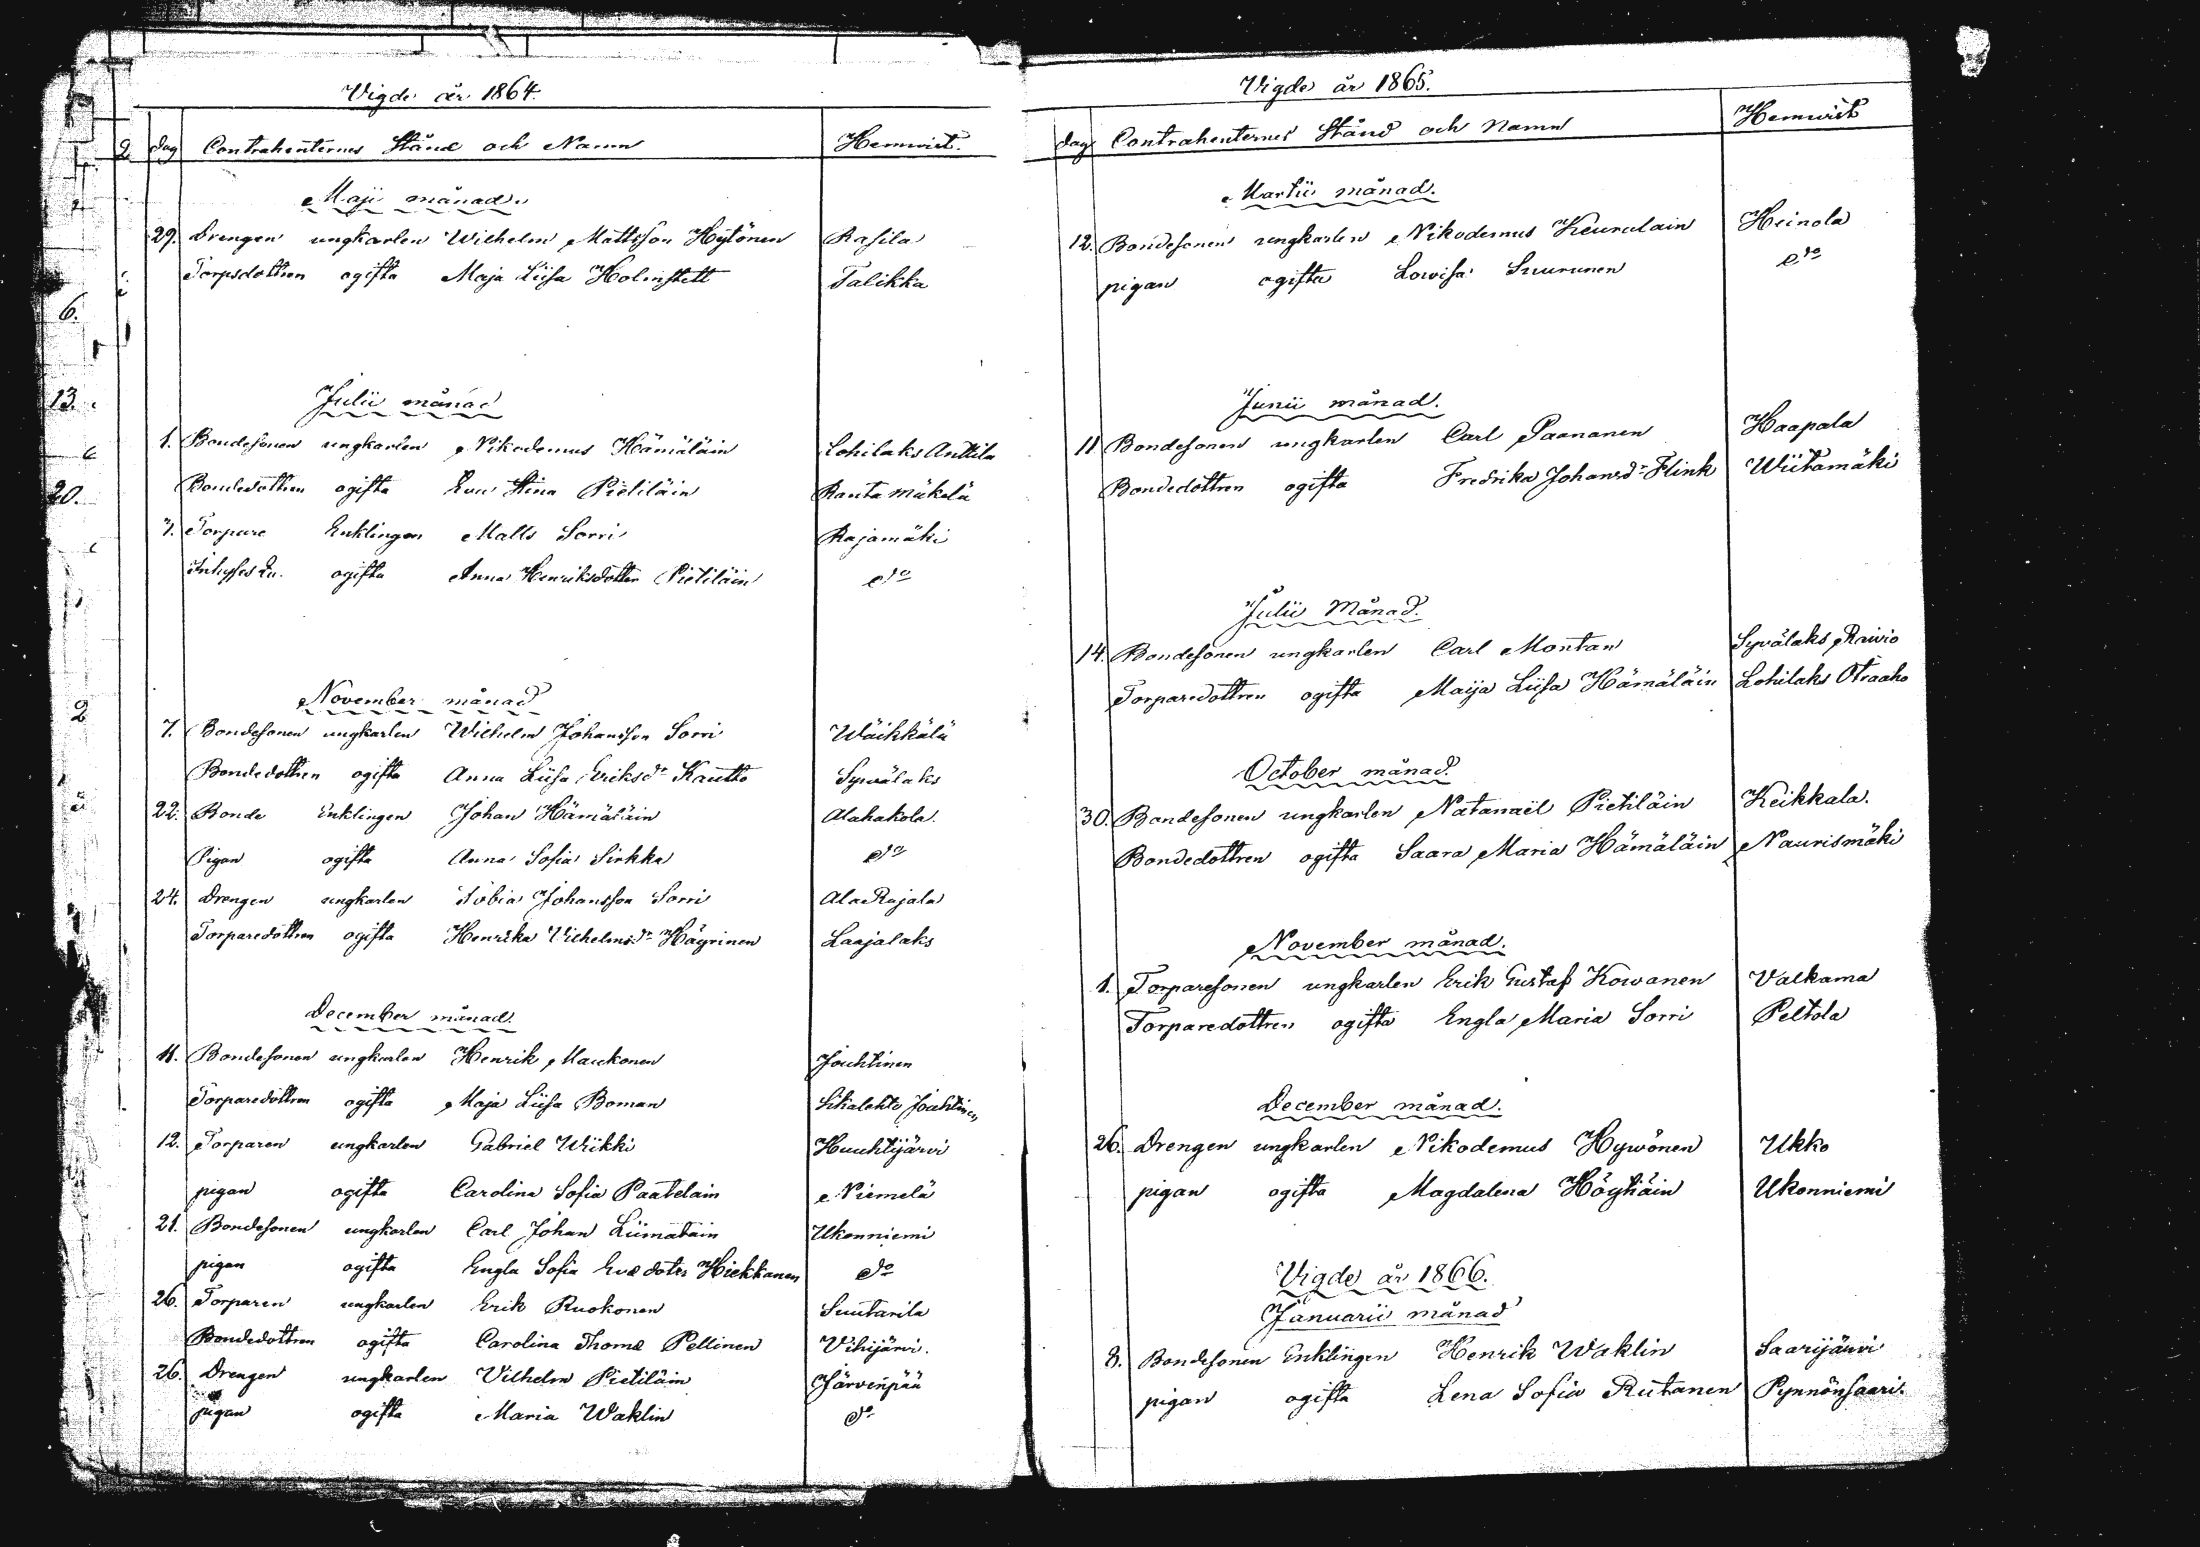 Vigde år 1864.
dag Contrahenternes Stånd och Namn Hemwist.
Maji månad.
29. Drengen ungkarlen Wilhelm Mattsson Hytönen Rasila
Torpsdottren ogifta Maja Liisa Holmstett Talikka
Julii månad
1. Bondesonen ungkarlen Nikodemus Hämäläin Lohilaks Anttila
Bondedottren ogifta Eva Stina Pietiläin Rautamäkelä
7. Torpare Enklingen Matts Sorri Rajamäki
Inhyses ogifta Anna Henriksdotter Pietiläin do
November månad
7. Bondesonen ungkarlen Wilhelm Johansson Sorri Wäikkälä
Bondedottren ogifta Anna Liisa Eriksdr Kautto Sywälaks
22. Bonde Enklingen Johan Hämäläin Alahakola.
Pigan ogifta Anna Sofia Sirkka do
24. Drengen ungkarlen Tobias Johansson Sorri Ala Rajala
Torparedottren ogifta Henrika Vilhelmsdr Häyrinen Laajalaks
December månad.
11. Bondesonen ungkarlen Henrik Maukonen Jouhtinen
Torparedottren ogifta Maja Liisa Boman Sikalahti Jouhtinen
12. Torparen ungkarlen Gabriel Wiikki Huuhtijärvi
pigan ogifta Carolina Sofia Paatelain Niemelä
21. Bondesonen ungkarlen Carl Johan Liimatain Ukonniemi
pigan ogifta Engla Sofia Evæ doter Hiekkanen do
26. Torparen ungkarlen Erik Ruokonen Suutarila
Bondedottren ogifta Carolina Thomæ Pellinen Vihijärvi.
26. Drengen ungkarlen Vilhelm Pietiläin Järvenpää
pigan ogifta Maria Waklin do
Vigde år 1865.
dag Contrahenternes Stånd och Namn Hemwist
Martii månad.
12. Bondesonen ungkarlen Nikodemus Keurulain Heinola
pigan ogifta Lowisa Suurunen do
Junii månad.
11 Bondesonen ungkarlen Carl Paananen Haapala
Bondedottren ogifta Fredrika Johansdr Flink Wiitamäki
Julii Månad.
14. Bondesonen ungkarlen Carl Montan Sywälaks Raivio
Torparedottren ogifta Maija Liisa Hämäläin Lohilaks Otraaho
October månad.
30. Bondesonen ungkarlen Natanaël Pietiläin Keikkala.
Bondedottren ogifta Saara Maria Hämäläin Naurismäki
November månad.
1. Torparesonen ungkarlen Erik Gustaf Kowanen Valkama
Torparedottren ogifta Engla Maria Sorri Peltola
December månad.
26. Drengen ungkarlen Nikodemus Hywönen Ukko
pigan ogifta Magdalena Höytiäin Ukonniemi
Vigde år 1866.
Januarii månad
8. Bondesonen Enklingen Henrik Waklin Saarijärvi
pigan ogifta Lena Sofia Rutanen Pynnönsaari.